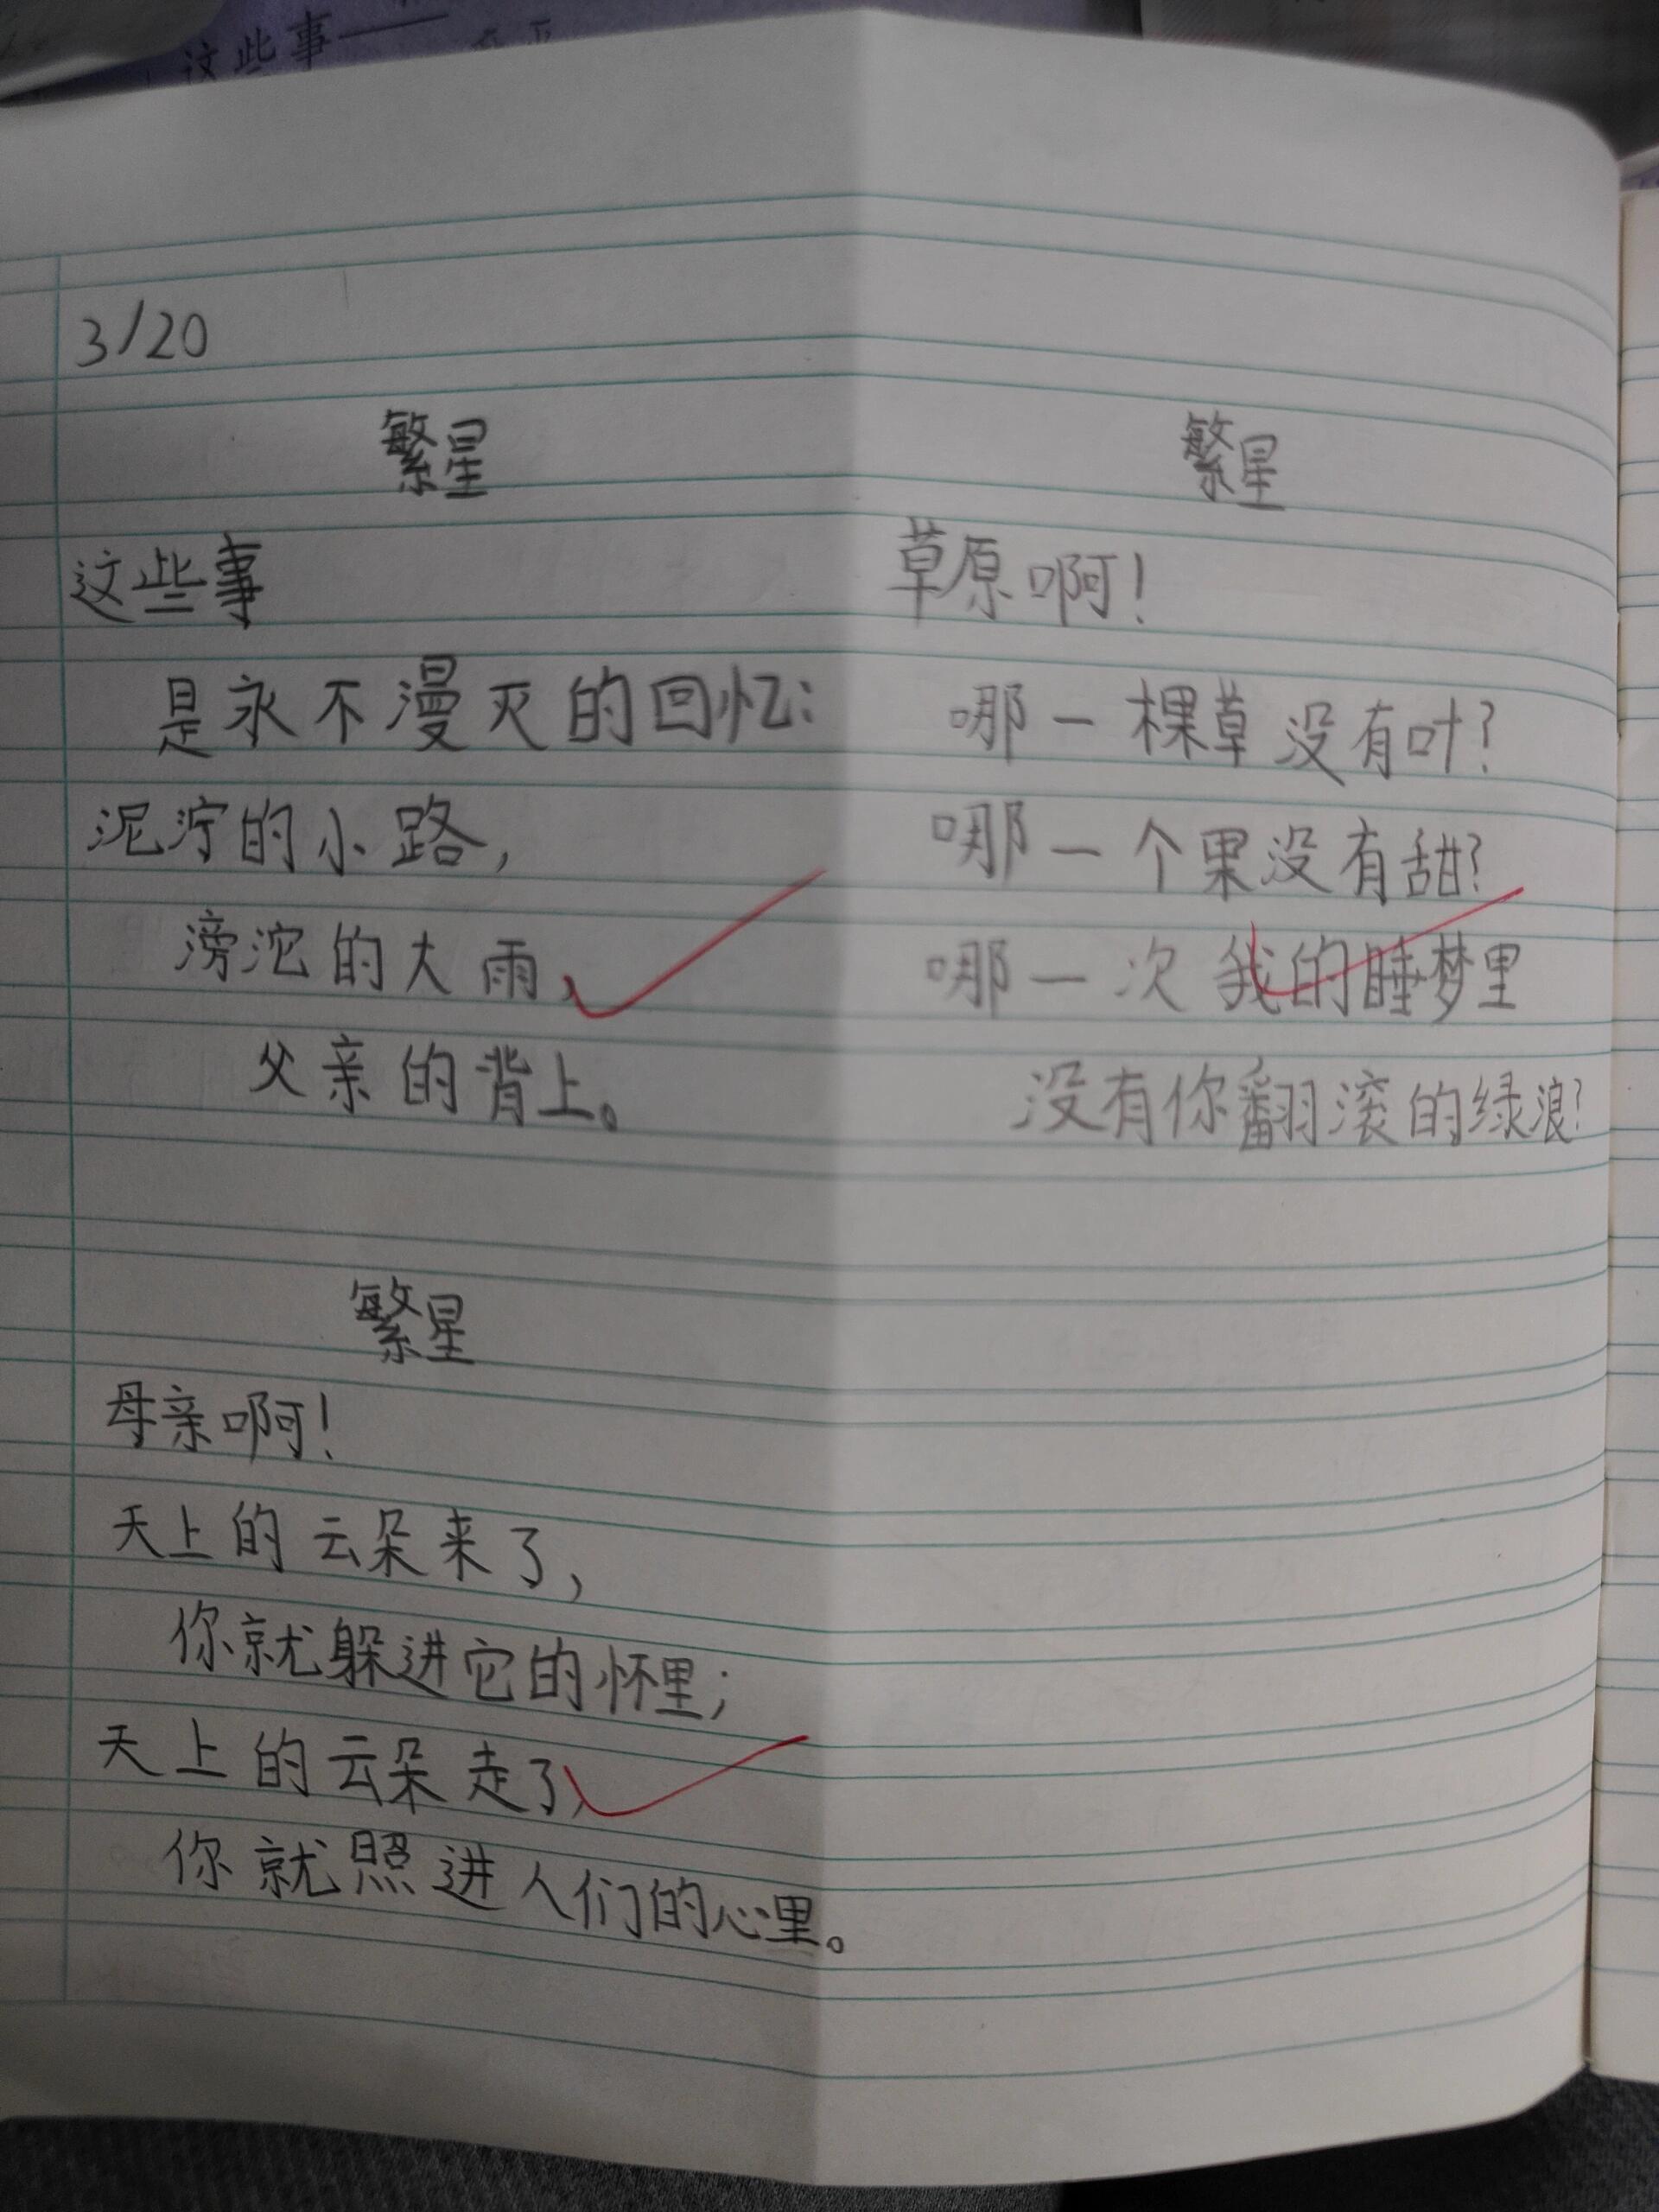 这些事——
3/20
繁星
这些事
是永不漫灭的回忆：
泥泞的小路，
滂沱的大雨，
父亲的背上。
繁星
母亲啊！
天上的云朵来了，
你就躲进它的怀里；
天上的云朵走了，
你就照进人们的心里。
繁星
草原啊！
哪一棵草没有叶？
哪一个果没有甜？
哪一次我的睡梦里
没有你翻滚的绿浪？